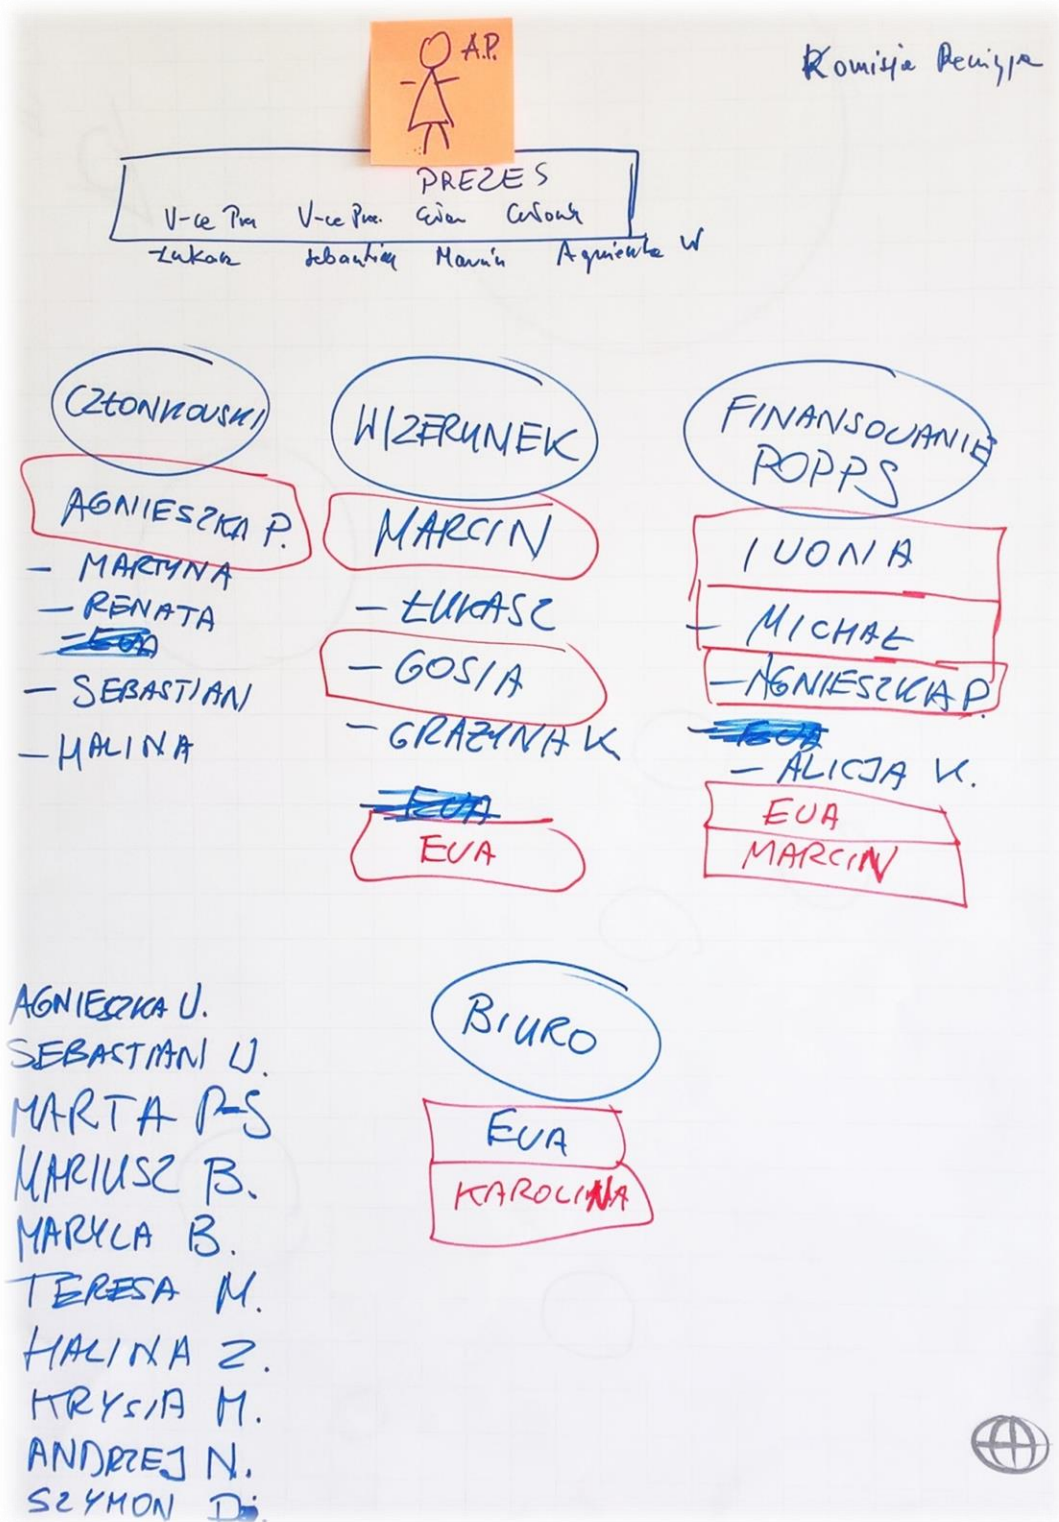 A.P.
Komisja
PREZES
V-ce Pre V-ce Pre.
Łukasz Sebastian Marcin Agnieszka W
CZŁONKOWSKI
AGNIESZKA P.
- MARTYNA
- RENATA
- EWA
- SEBASTIAN
- HALINA
WIZERUNEK
MARCIN
- ŁUKASZ
- GOSIA
- GRAŻYNA K
- EWA
EWA
FINANSOWANIE
POPPS
IWONA
- MICHAŁ
- AGNIESZKA P.
- EWA
- ALICJA K.
EWA
MARCIN
BIURO
EWA
KAROLINA
AGNIESZKA W.
SEBASTIAN W.
MARTA P-S
MARIUSZ B.
MARYLA B.
TERESA M.
HALINA Z.
KRYSIA M.
ANDRZEJ N.
SZYMON D.